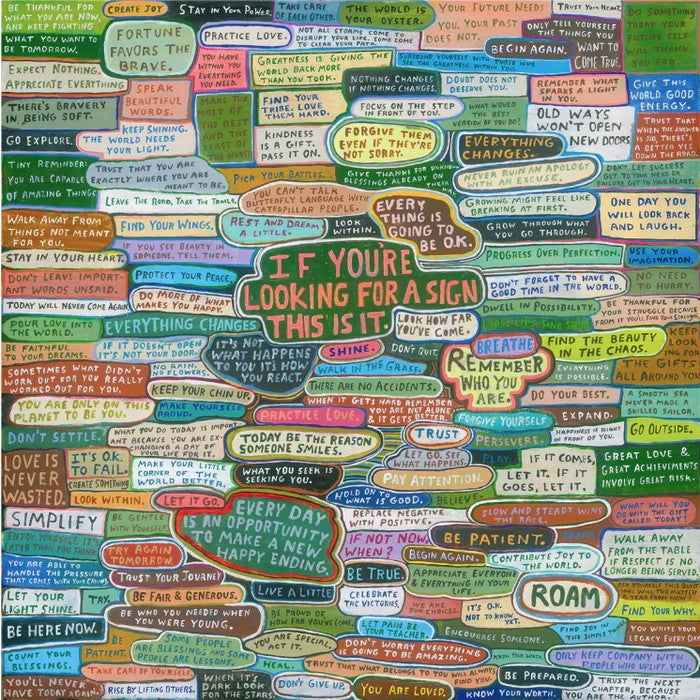 BE THANKFUL FOR
WHAT YOU ARE NOW,
AND KEEP FIGHTING
WHAT YOU WANT TO
BE TOMORROW.
CREATE JOY
STAY IN YOUR POWER.
TAKE CARE
OF EACH OTHER.
THE WORLD IS
YOUR OYSTER.
YOUR FUTURE NEEDS
YOU. YOUR PAST
DOES NOT.
TRUST YOUR HEART.
DO SOMETHING
TODAY YOUR
FUTURE SELF
WILL THANK
YOU FOR.
FORTUNE
FAVORS THE
BRAVE.
PRACTICE LOVE.
NOT ALL STORMS COME TO
DISRUPT YOUR LIFE. SOME COME
TO CLEAR YOUR PATH.
ONLY TELL YOURSELF
THE THINGS YOU
WANT TO
COME TRUE.
BEGIN AGAIN.
EXPECT NOTHING.
APPRECIATE EVERYTHING
YOU HAVE
WITHIN YOU
EVERYTHING
YOU NEED.
GREATNESS IS GIVING THE
WORLD BACK MORE
THAN YOU TOOK.
SURROUND YOURSELF WITH THOSE WHO
SEE THE GREATNESS WITHIN YOU.
SPEAK
BEAUTIFUL
WORDS.
NOTHING CHANGES
IF NOTHING CHANGES.
DOUBT DOES NOT
DESERVE YOU.
REMEMBER WHAT
SPARKS A LIGHT
IN YOU.
GIVE THIS
WORLD GOOD
ENERGY.
THERE'S BRAVERY
IN BEING SOFT.
MAKE THE
MOST OF
THE BEST
AND THE
LEAST OF
THE WORST
FIND YOUR
VIBE. LOVE
THEM HARD.
FOCUS ON THE STEP
IN FRONT OF YOU.
WHAT WOULD
THE BEST
VERSION OF YOU DO?
OLD WAYS
WON'T OPEN
NEW DOORS
TRUST THAT
WHEN THE ANSWER
IS NO, THERE'S
A BETTER YES
DOWN THE ROAD
GO EXPLORE.
KEEP SHINING.
THE WORLD NEEDS
YOUR LIGHT.
KINDNESS
IS A GIFT.
PASS IT ON.
FORGIVE THEM
EVEN IF THEY'RE
NOT SORRY.
EVERYTHING
CHANGES.
TINY REMINDER:
YOU ARE CAPABLE
OF AMAZING THINGS
TRUST THAT YOU ARE
EXACTLY WHERE YOU ARE
MEANT TO BE.
PICK YOUR BATTLES.
GIVE THANKS FOR UNKNOWN
BLESSINGS ALREADY ON
THEIR WAY
NEVER RUIN AN APOLOGY
WITH AN EXCUSE.
DON'T LET SUCCESS
GET TO YOUR HEAD OR
FAILURE GET TO YOUR HEART.
LEAVE THE ROAD, TAKE THE TRAILS.
YOU CAN'T TALK
BUTTERFLY LANGUAGE WITH
CATERPILLAR PEOPLE.
EVERY
THING IS
GOING TO
BE O.K.
GROWING MIGHT FEEL LIKE
BREAKING AT FIRST.
ONE DAY YOU
WILL LOOK BACK
AND LAUGH.
WALK AWAY FROM
THINGS NOT MEANT
FOR YOU.
FIND YOUR WINGS.
REST AND DREAM
A LITTLE.
LOOK
WITHIN.
GROW THROUGH WHAT
YOU GO THROUGH.
STAY IN YOUR HEART.
IF YOU SEE BEAUTY IN
SOMEONE, TELL THEM.
PROGRESS OVER PERFECTION.
USE YOUR
IMAGINATION.
DON'T LEAVE IMPORT-
ANT WORDS UNSAID.
PROTECT YOUR PEACE.
IF YOU'RE
LOOKING FOR A SIGN
THIS IS IT.
DON'T FORGET TO HAVE A
GOOD TIME IN THE WORLD.
NO NEED
TO HURRY.
TODAY WILL NEVER COME AGAIN
DO MORE OF WHAT
MAKES YOU HAPPY.
DWELL IN POSSIBILITY.
BE THANKFUL FOR
YOUR STRUGGLE BECAUSE
FROM IT YOU'LL FIND YOUR STRENGTH
POUR LOVE INTO
THE WORLD.
EVERYTHING CHANGES
LOOK HOW FAR
YOU'VE COME.
BE FAITHFUL
TO YOUR DREAMS.
IF IT DOESN'T OPEN
IT'S NOT YOUR DOOR.
IT'S NOT
WHAT HAPPENS
TO YOU IT'S HOW
YOU REACT.
SHINE.
DON'T QUIT.
BREATHE
FIND THE BEAUTY
IN THE CHAOS.
KEEP
LOOKING
FOR
THE GIFTS
ALL AROUND YOU
SOMETIMES WHAT DIDN'T
WORK OUT FOR YOU REALLY
WORKED OUT FOR YOU.
NO RAIN,
NO FLOWERS.
WALK IN THE GRASS.
REMEMBER
WHO YOU
ARE.
EVERYTHING
IS POSSIBLE.
KEEP YOUR CHIN UP.
THERE ARE NO ACCIDENTS.
DO YOUR BEST.
A SMOOTH SEA
NEVER MADE A
SKILLED SAILOR.
YOU ARE ONLY ON THIS
PLANET TO BE YOU.
MAKE YOURSELF
PROUD.
PRACTICE LOVE
WHEN IT GETS HARD REMEMBER
YOU ARE NOT ALONE
& IT GETS BETTER.
FORGIVE YOURSELF
EXPAND.
DON'T SETTLE.
WHAT YOU DO TODAY IS IMPORT-
ANT BECAUSE YOU ARE EX-
CHANGING A DAY OF
YOUR LIFE FOR IT.
TODAY BE THE REASON
SOMEONE SMILES.
TRUST
PERSEVERE.
HAPPINESS IS RIGHT
IN FRONT OF YOU.
GO OUTSIDE.
LOVE IS
NEVER
WASTED.
IT'S O.K.
TO FAIL.
CREATE SOMETHING
MAKE YOUR LITTLE
CORNER OF THE
WORLD BETTER.
WHAT YOU SEEK IS
SEEKING YOU.
LET GO. SEE
WHAT HAPPENS.
PLAY.
IF IT COMES,
LET IT. IF IT
GOES, LET IT.
GREAT LOVE &
GREAT ACHIEVEMENT
INVOLVE GREAT RISK.
PAY ATTENTION.
LOOK WITHIN.
LET IT GO.
HOLD ON TO
WHAT IS GOOD.
BELIEVE.
SIMPLIFY
BE GENTLE
WITH YOURSELF.
EVERY DAY
IS AN OPPORTUNITY
TO MAKE A NEW
HAPPY ENDING.
REPLACE NEGATIVE
WITH POSITIVE.
SLOW AND STEADY WINS
THE RACE.
WHAT WILL YOU
DO WITH THE GIFT
CALLED TODAY?
ENJOY YOURSELF. IT'S
LATER THAN YOU THINK.
TRY AGAIN
TOMORROW
IF NOT NOW,
WHEN?
BE PATIENT.
WALK AWAY
FROM THE TABLE
IF RESPECT IS NO
LONGER BEING SERVED.
YOU ARE ABLE TO
HANDLE THE PRESSURE
THAT COMES WITH YOUR CALLING
TRUST YOUR JOURNEY
BEGIN AGAIN.
CONTRIBUTE JOY TO
THE WORLD.
BE TRUE.
APPRECIATE EVERYONE
& EVERYTHING IN YOUR
LIFE.
ROAM
LET YOUR
LIGHT SHINE.
BE FAIR & GENEROUS.
LIVE A LITTLE
CELEBRATE
THE VICTORIES.
WE ARE
OUR CHOICES.
IT'S O.K.
NOT TO KNOW
YET.
FIND YOUR WHY.
BE HERE NOW.
BE WHO YOU NEEDED WHEN
YOU WERE YOUNG.
BE PROUD OF
HOW FAR YOU'VE COME.
LET PAIN BE
YOUR TEACHER.
ENCOURAGE SOMEONE.
FIND JOY IN
THE SIMPLE THINGS
YOU WRITE YOUR
LEGACY EVERY DAY
COUNT YOUR
BLESSINGS.
BE
PATIENT.
SOME PEOPLE
ARE BLESSINGS AND SOME
PEOPLE ARE LESSONS.
YOU ARE SPECIAL
ACT IT.
DON'T WORRY EVERYTHING
IS GOING TO BE AMAZING.
KNOW YOUR WORTH.
ONLY KEEP COMPANY WITH
PEOPLE WHO UPLIFT YOU.
HEAL.
TRUST THAT WHAT BELONGS TO YOU WILL ALWAYS
YOU'LL NEVER
HAVE TODAY AGAIN.
TAKE CARE OF YOURSELF
RISE BY LIFTING OTHERS.
WHEN IT'S
DARK LOOK
FOR THE STARS.
DON'T GIVE UP.
YOU ARE LOVED.
KNOW YOUR WORTH.
BE PREPARED.
TRUST THE NEXT
CHAPTER, BECAUSE
YOU ARE THE AUTHOR.